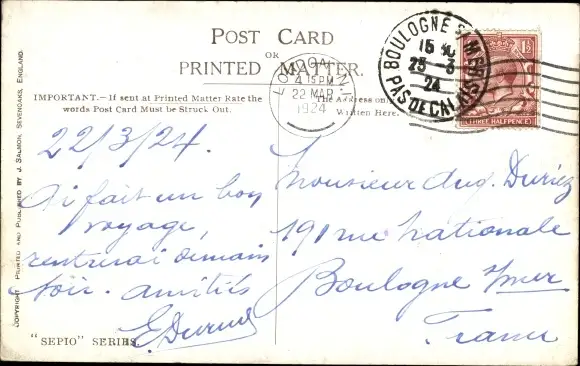 POST CARD
OR
PRINTED MATTER.
IMPORTANT.—If sent at Printed Matter Rate the
words Post Card Must be Struck Out.
The Address only
Written Here.
LONDON. N.1
4.15 PM
22 MAR
1924
BOULOGNE S/MER
15
23-3
24
PAS DE CALAIS
1½
(THREE HALFPENCE)
22/3/24.
Ai fait un bon
voyage,
rentrerai demain
soir. amitiés
E. 
Monsieur Aug. Duriez
191 rue Nationale
Boulogne s/mer
France
"SEPIO" SERIES.
COPYRIGHT PRINTED AND PUBLISHED BY J. SALMON, SEVENOAKS, ENGLAND.